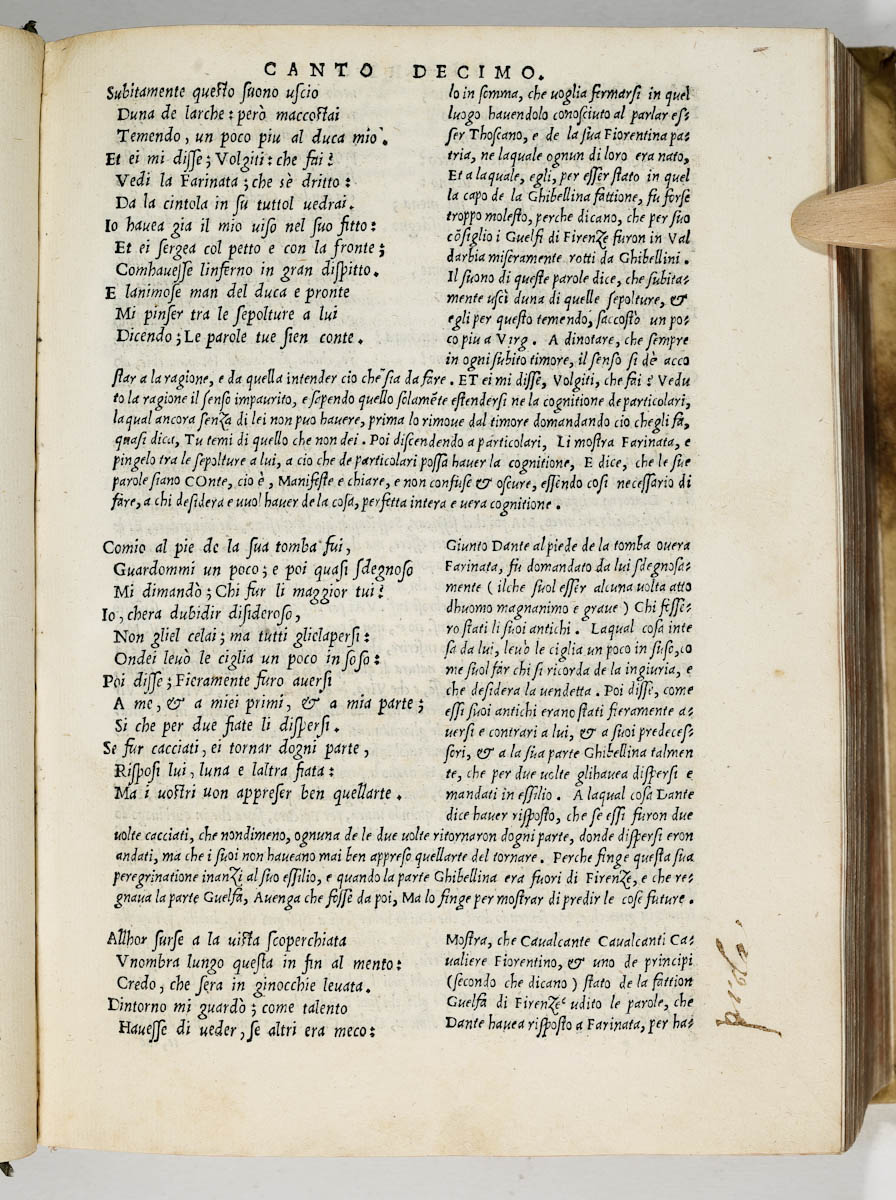 CANTO DECIMO.
Subitamente questo suono uscio
Duna de larche: però maccostai
Temendo, un poco piu al duca mio.
Et ei mi disse; Volgiti: che fai?
Vedi la Farinata; che sè dritto:
Da la cintola in su tuttol uedrai.
Io hauea gia il mio uiso nel suo fitto:
Et ei sergea col petto e con la fronte;
Comhauesse linferno in gran dispitto.
E lanimose man del duca e pronte
Mi pinser tra le sepolture a lui
Dicendo; Le parole tue sien conte.
lo in somma, che uoglia fermarsi in quel
luogo hauendolo conosciuto al parlar es-
ser Thoscano, e de la sua Fiorentina pa-
tria, ne laquale ognun di loro era nato,
Et a laquale, egli, per esser stato in quel
la capo de la Ghibellina fattione, fu forse
troppo molesto, perche dicano, che per suo
cõsiglio i Guelfi di Firenze furon in Val
darbia miseramente rotti da Ghibellini.
Il suono di queste parole dice, che subita-
mente uscì duna di quelle sepolture, &
egli per questo temendo, saccostò un po-
co piu a Virg. A dinotare, che sempre
in ogni subito timore, il senso si dè acco
star a la ragione, e da quella intender cio che sia da fare. ET ei mi disse, Volgiti, che fai? Vedu
to la ragione il senso impaurito, e sapendo quello solamēte estendersi ne la cognitione de particolari,
la qual ancora senza di lei non puo hauere, prima lo rimoue dal timore domandando cio chegli fa,
quasi dica, Tu temi di quello che non dei. Poi discendendo a particolari, Li mostra Farinata, e
pingelo tra le sepolture a lui, a cio che de particolari possa hauer la cognitione, E dice, che le sue
parole siano COnte, cio è, Manifeste e chiare, e non confuse & oscure, essendo cosi necessario di
fare, a chi desidera e uuol hauer de la cosa, perfetta intera e uera cognitione.
Comio al pie de la sua tomba fui,
Guardommi un poco; e poi quasi sdegnoso
Mi dimandò; Chi fur li maggior tui?
Io, chera dubidir disideroso,
Non gliel celai; ma tutti gliclapersi:
Ondei leuò le ciglia un poco in soso:
Poi disse; Fieramente furo auersi
A me, & a miei primi, & a mia parte;
Si che per due fiate li dispersi.
Se fur cacciati, ei tornar dogni parte,
Risposi lui, luna e laltra fiata:
Ma i uostri uon appreser ben quellarte.
Giunto Dante al piede de la tomba ouera
Farinata, fù domandato da lui sdegnosa-
mente (ilche suol esser alcuna uolta atto
dhuomo magnanimo e graue) Chi fesse-
ro stati li suoi antichi. Laqual cosa inte
sa da lui, leuò le ciglia un poco in suso, co
me suol far chi si ricorda de la ingiuria, e
che desidera la uendetta. Poi disse, come
essi suoi antichi erano stati fieramente a-
uersi e contrari a lui, & a suoi predeces-
sori, & a la sua parte Ghibellina talmen
te, che per due uolte glihauea dispersi e
mandati in essilio. A laqual cosa Dante
dice hauer risposto, che se essi furon due
uolte cacciati, che nondimeno, ognuna de le due uolte ritornaron dogni parte, donde dispersi eron
andati, ma che i suoi non haueano mai ben appreso quellarte del tornare. Perche finge questa sua
peregrinatione inanzi al suo essilio, e quando la parte Ghibellina era fuori di Firenze, e che re-
gnaua la parte Guelfa, Auenga che fesse da poi, Ma lo finge per mostrar di predir le cose future.
Allhor surse a la uista scoperchiata
Vnombra lungo questa in fin al mento:
Credo, che sera in ginocchie leuata.
Dintorno mi guardò; come talento
Hauesse di ueder, se altri era meco:
Mostra, che Caualcante Caualcanti Ca-
ualiere Fiorentino, & uno de principi
(secondo che dicano) stato de la fattion
Guelfa di Firenze udito le parole, che
Dante hauea risposto a Farinata, per ha-